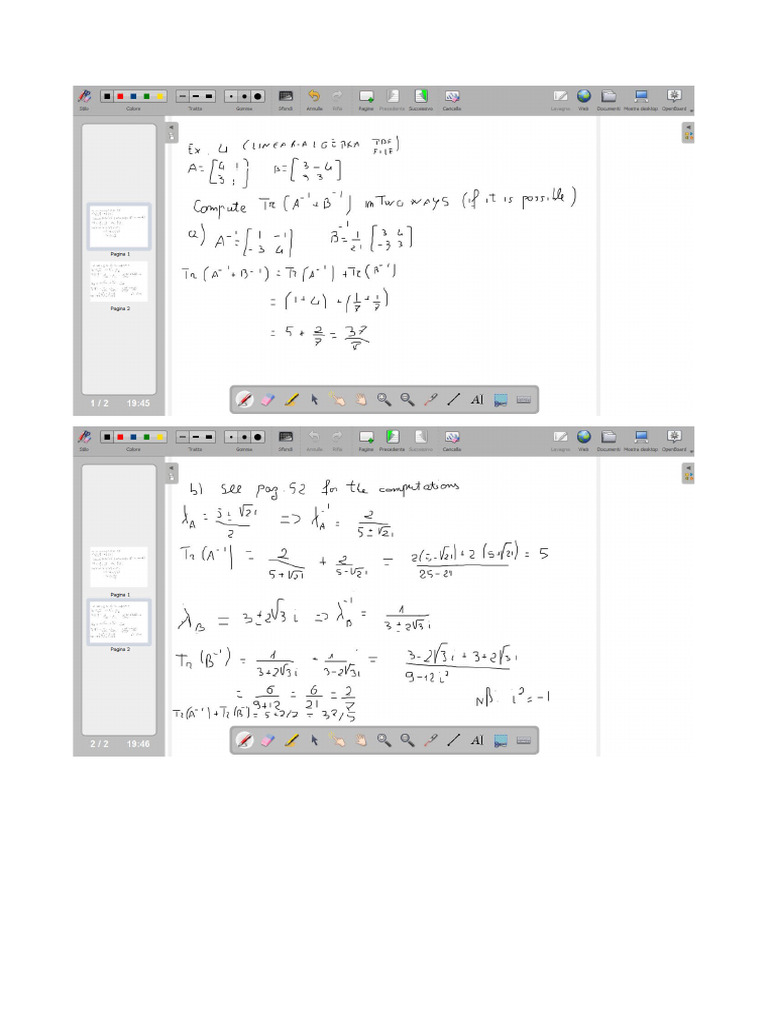 Stilo Colore Tratto Gomma Sfondi Annulla Rifai Pagine Precedente Successivo Cancella Lavagna Web Documenti Mostra desktop OpenBoard
Ex. 4 (LINEAR ALGEBRA PDF FILE)
A = [4 1; 3 1] B = [3 -4; 3 3]
Compute Tr(A⁻¹+B⁻¹) in two ways (if it is possible)
a) A⁻¹ = [1 -1; -3 4] B⁻¹ = 1/21 [3 4; -3 3]
Tr(A⁻¹+B⁻¹) = Tr(A⁻¹) + Tr(B⁻¹)
= (1+4) + (1/7 + 1/7)
= 5 + 2/7 = 37/7
Pagina 1
Pagina 2
1 / 2 19:45
Stilo Colore Tratto Gomma Sfondi Annulla Rifai Pagine Precedente Successivo Cancella Lavagna Web Documenti Mostra desktop OpenBoard
b) See pag. 52 for the computations
λA = 5±√21/2 => λA⁻¹ = 2/5±√21
Tr(A⁻¹) = 2/5+√21 + 2/5-√21 = 2(5-√21)+2(5+√21)/25-21 = 5
λB = 3±2√3i => λB⁻¹ = 1/3±2√3i
Tr(B⁻¹) = 1/3+2√3i + 1/3-2√3i = 3-2√3i+3+2√3i/9-12i²
= 6/9+12 = 6/21 = 2/7 NB: i²=-1
Tr(A⁻¹)+Tr(B⁻¹) = 5+2/7 = 37/7
Pagina 1
Pagina 2
2 / 2 19:46